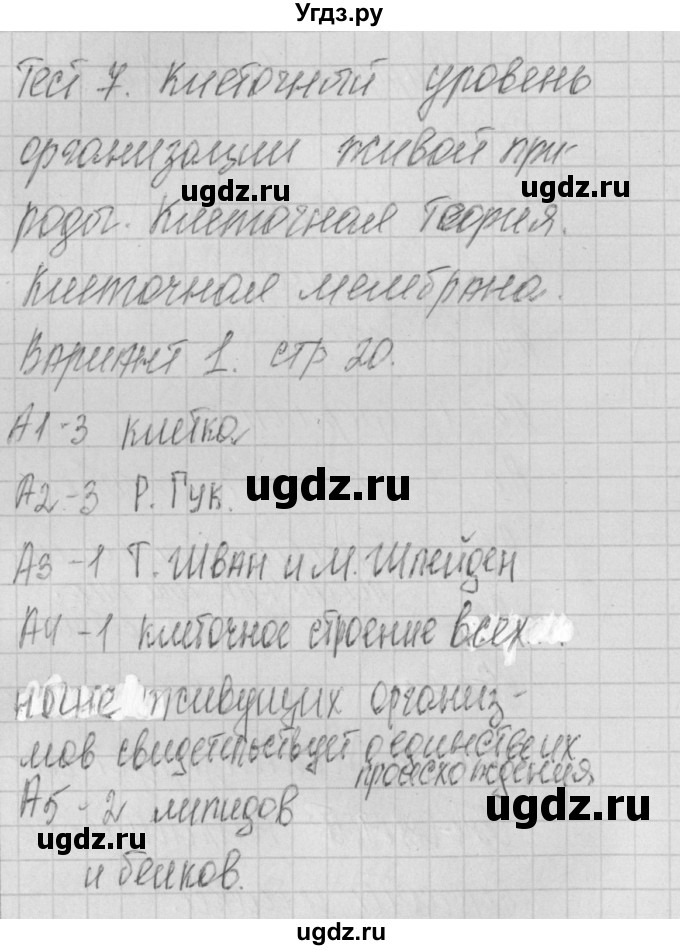 Угдз.ру
Тест 7. Клеточный уровень
организации живой при-
ugdz.ru ugdz.ru
роды. Клеточная теория.
Клеточная мембрана.
Вариант 1. стр 20.
А1-3 клетка
А2-3 Р. Гук. ugdz.ru
А3-1 Т. Шван и М. Шлейден
А4-1 клеточное строение всех
ныне живущих организ-
мов свидетельствует о единстве их
происхождения
А5-2 липидов ugdz.ru
ugdz.ru
и белков.
ugdz.ru